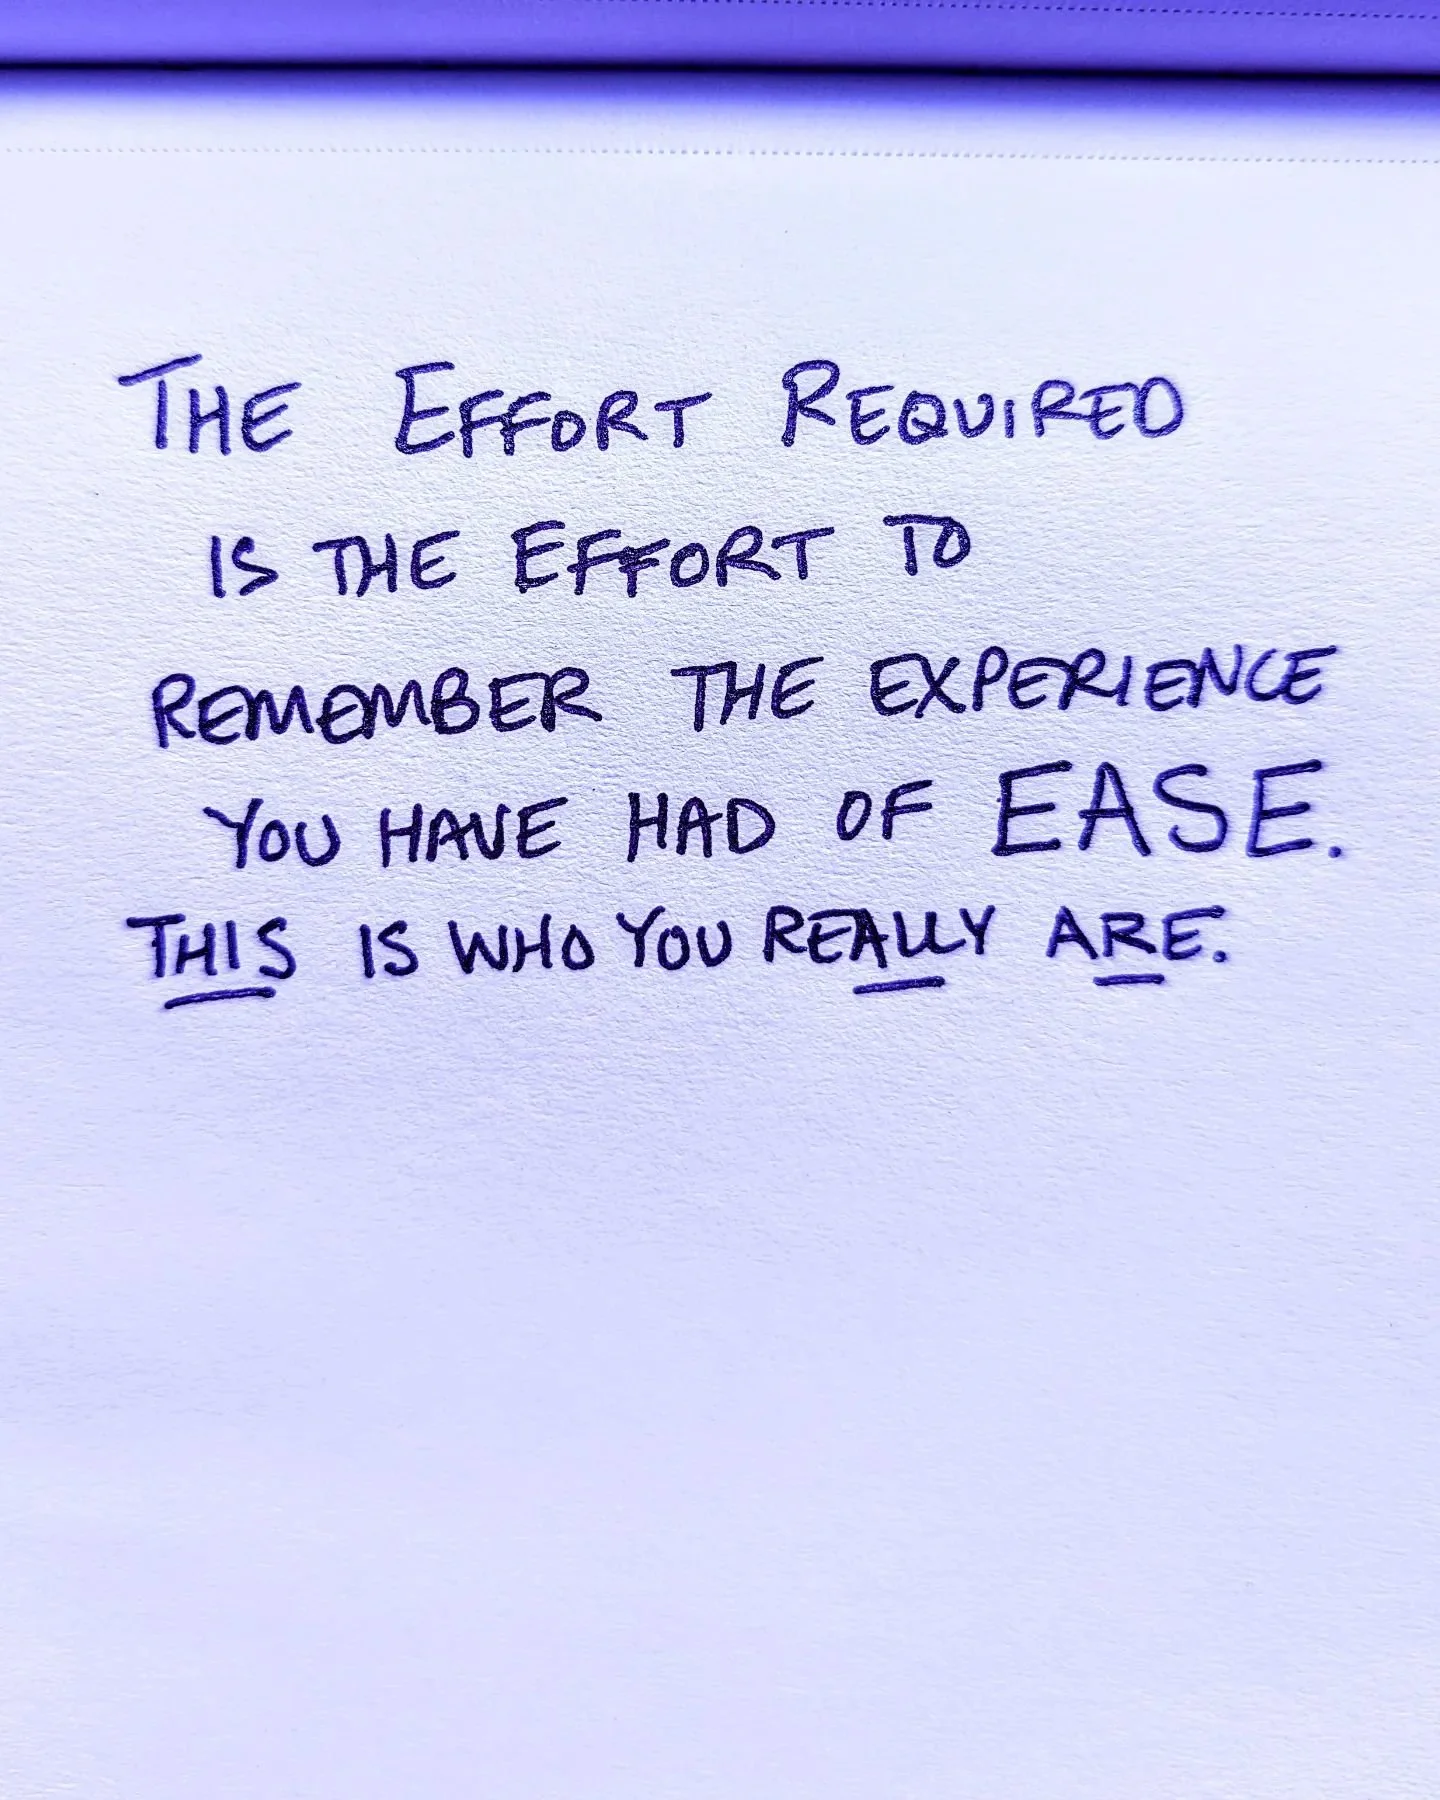 THE EFFORT REQUIRED
IS THE EFFORT TO
REMEMBER THE EXPERIENCE
YOU HAVE HAD OF EASE.
THIS IS WHO YOU REALLY ARE.